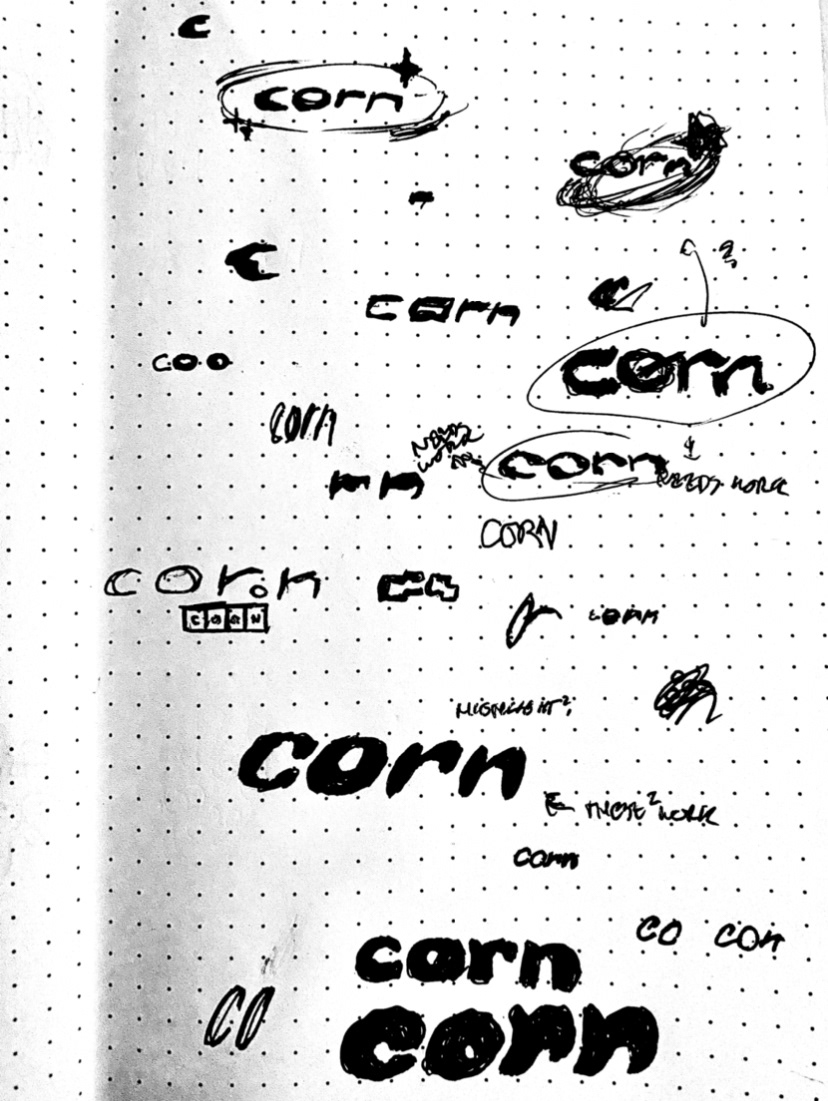 c
corn
corn
c
corn
c
coo
corn
corn
NEEDS
WORK
corn
NEEDS WORK
rn
CORN
corn
co
CORN
r
corn
corn
THESE 2 WORK
corn
co con
corn
CO
corn